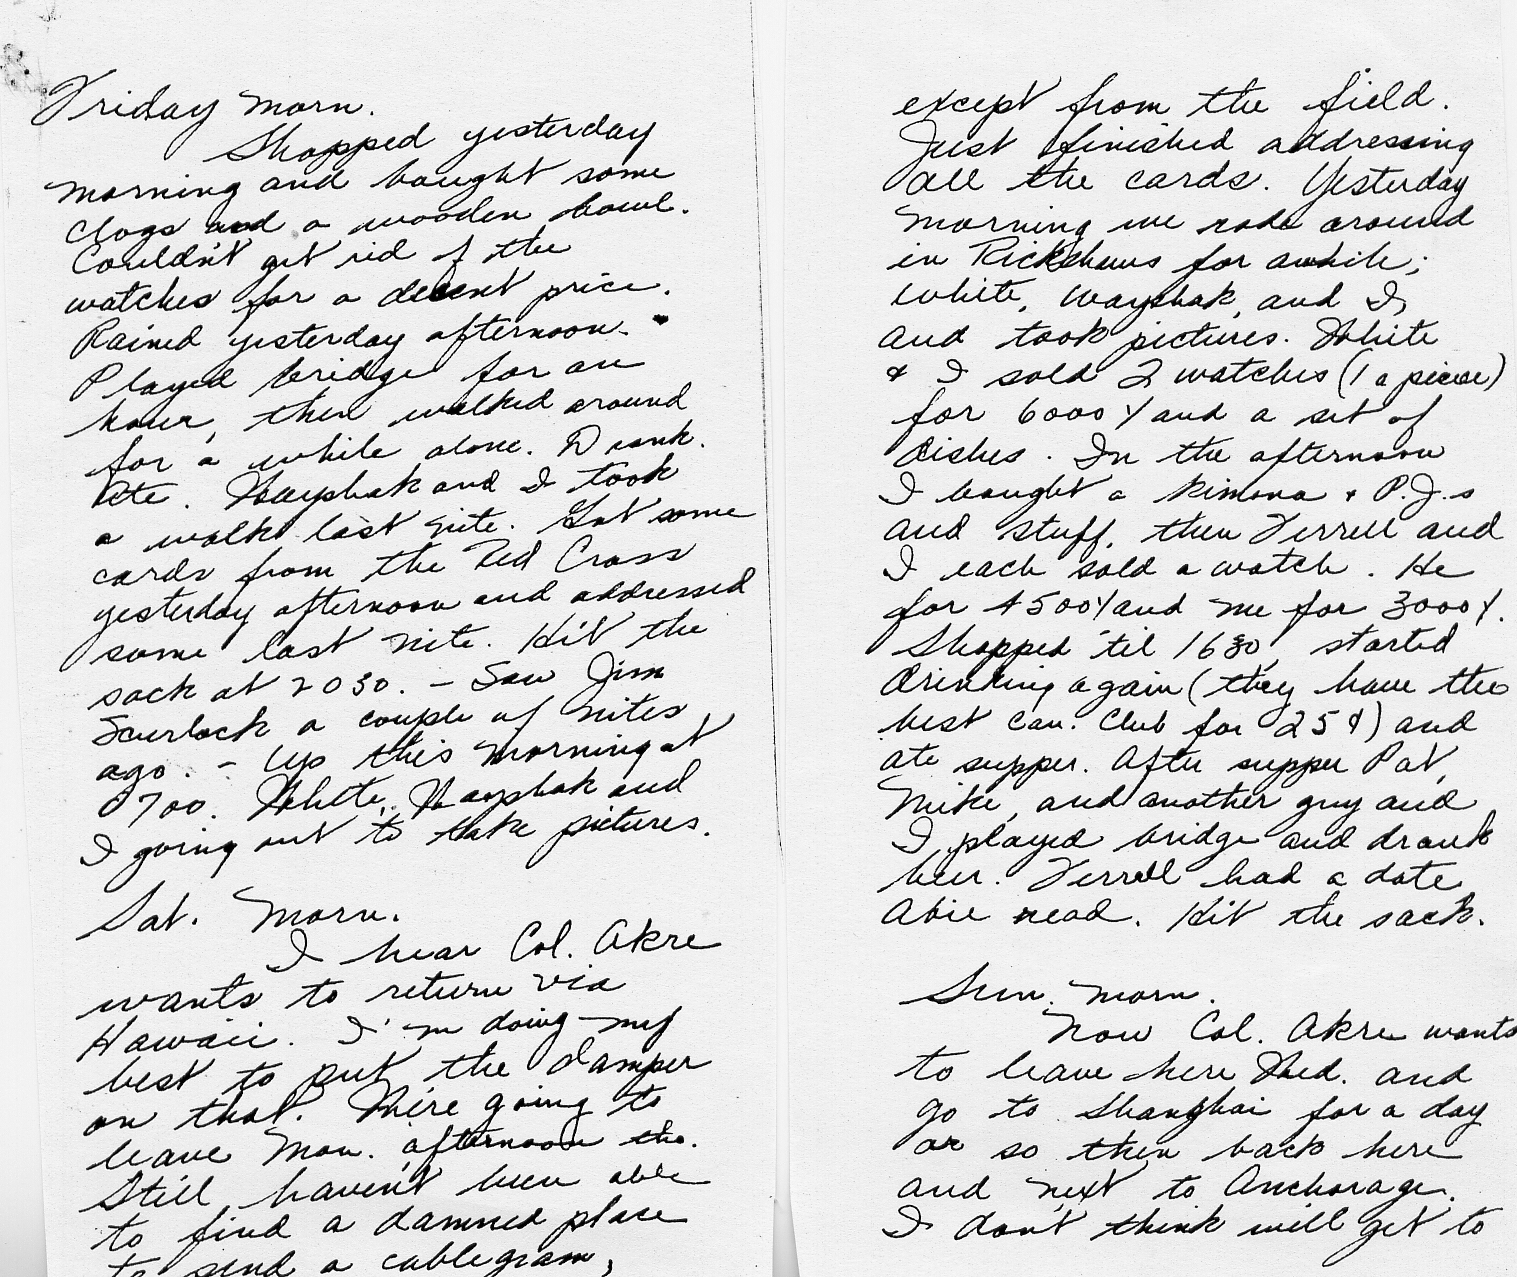 Friday Morn.
Shopped yesterday
morning and bought some
clogs and a wooden bowl.
Couldn't get rid of the
watches for a decent price.
Rained yesterday afternoon.
Played bridge for an
hour, then walked around
for a while alone. Drank.
Ate. Wayshak and I took
a walk last nite. Got some
cards from the Red Cross
yesterday afternoon and addressed
some last nite. Hit the
sack at 2030. – Saw Jim
Scurlock a couple of nites
ago. – Up this morning at
0700. White, Wayshak and
I going out to take pictures.
Sat. Morn.
I hear Col. Akre
wants to return via
Hawaii. I'm doing my
best to put the damper
on that. We're going to
leave Mon. afternoon tho.
Still haven't been able
to find a damned place
to send a cablegram,
except from the field.
Just finished addressing
all the cards. Yesterday
morning we rode around
in Rickshaws for awhile;
White, Wayshak, and I,
and took pictures. White
& I sold 2 watches (1 a piece)
for 6000 Y and a set of
dishes. In the afternoon
I bought a kimona & P.J.s
and stuff, then Terrell and
I each sold a watch. He
for 4500Y and me for 3000Y.
Shopped 'til 1630, started
drinking again (they have the
best Can. Club for 25¢) and
ate supper. After supper Pat,
Mike, and another guy and
I played bridge and drank
beer. Terrell had a date
Abie read. Hit the sack.
Sun. Morn.
Now Col. Akre wants
to leave here Wed. and
go to Shanghai for a day
or so then back here
and next to Anchorage.
I don't think will get to